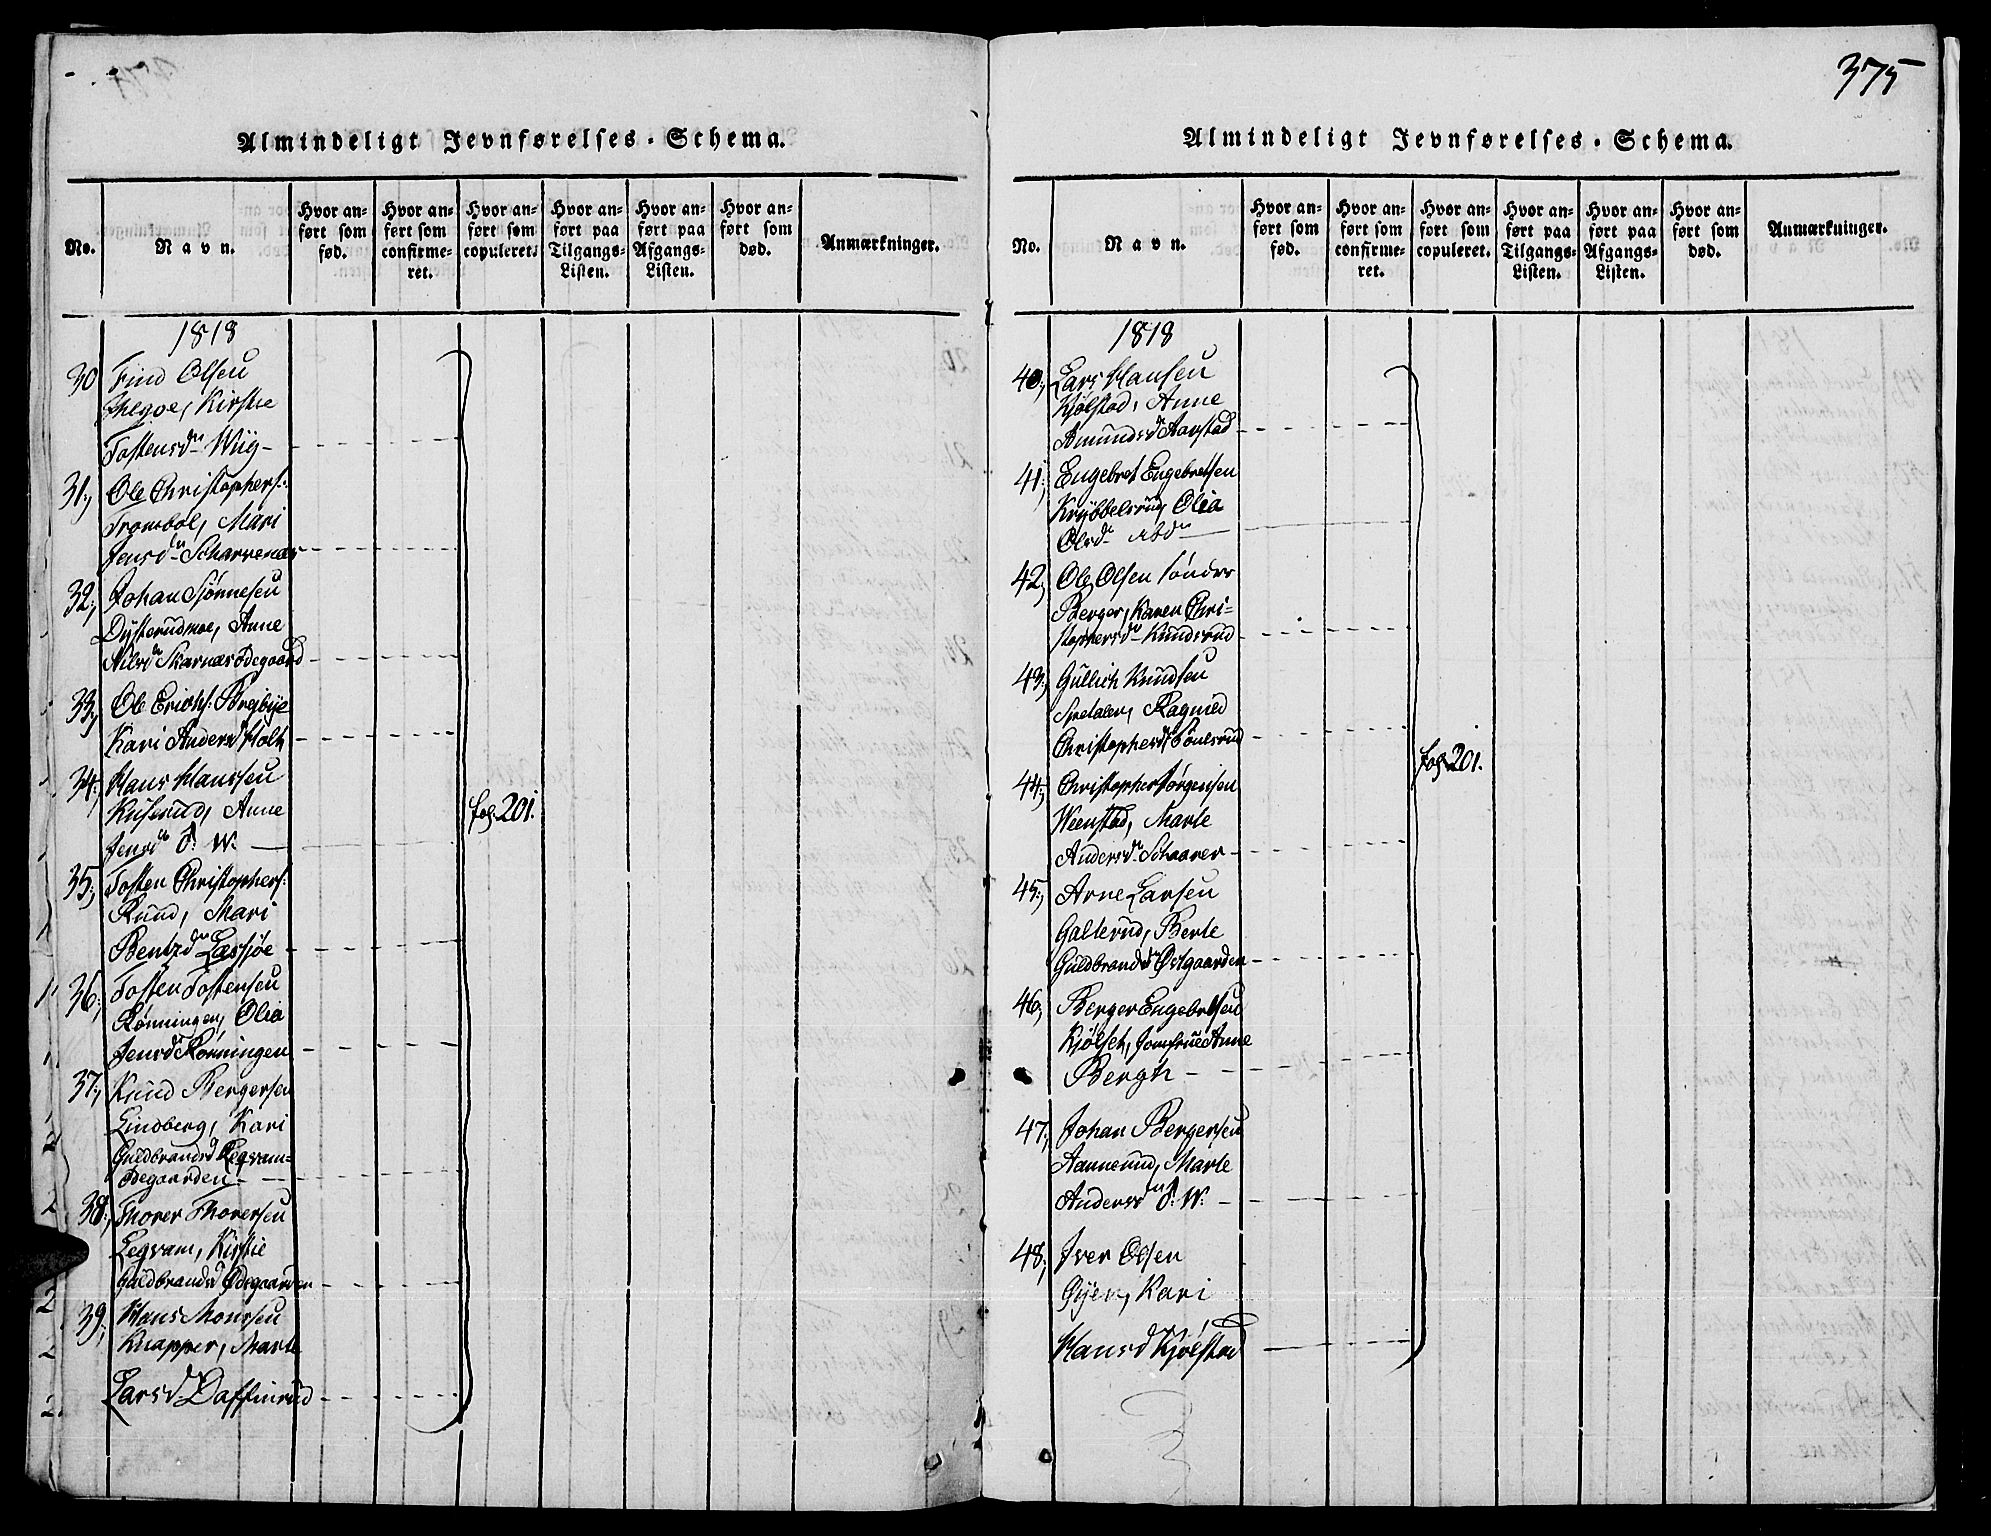 Almindeligt Jevnførelses-Schema.
No.
Navn.
Hvor anført som fød.
Hvor anført som confirmeret.
Hvor anført som copuleret.
Hvor anført paa Tilgangs-Listen.
Hvor anført paa Afgangs-Listen.
Hvor anført som død.
Anmærkninger.
1818
30 Find Olsen
Kirstie
Tostensdr Wiig
31, Ole Christophers:
Trombol, Mari
Jensdr Scharrenær
32, Johan Sjønnesen
Dysterudmoe, Anne
Nilsdr Skarnæsødegaard
33, Ole Erichs: Bregbye
Kari Andersd Holt
34, Hans Hanssen
Kuserud, Anne
Jensdr S. W.
35, Tosten Christophers:
Ruud, Mari
Bentzdr Løssjøe
36, Tosten Tostensen
Rønningen, Olia
Jensdr Rønningen
37, Knud Bergersen
Lindberg, Kari
Guldbrandsd Legram-
ødegaarden
38, Thorer Thorersen
Legram, Kirstie
Guldbrandsd Ødegaarden
39, Hans Monssen
Knapper, Marte
Larsdr Daffinrud
fol. 201.
375
Almindeligt Jevnførelses-Schema.
No.
Navn.
Hvor anført som fød.
Hvor anført som confirmeret.
Hvor anført som copuleret.
Hvor anført paa Tilgangs-Listen.
Hvor anført paa Afgangs-Listen.
Hvor anført som død.
Anmærkninger.
1818
40, Lars Hansen
Kjølstad, Anne
Amundsdr Aarstad
41, Engebret Engebretsen
Krybbelsrud, Olia
Olsdr
42, Ole Olsen søndre
Berger, Karen Chri-
stophersdr Knudsrud
43, Gullich Knudsen
Spetalen, Ragnild
Christophersdr
44, Christopher Jørgensen
Weenstad, Marte
Andersdr Schaarer
45, Arne Larsen
Galterud, Berte
Guldbrandsdr Østgaarden
46, Berger Engebretsen
Kjølset, Jomfrue Anne
Bergh
47, Johan Bergersen
Aannerud, Marte
Andersdr S. W.
48, Iver Olsen
Øyen, Kari
Hansd Kjølstad
fol. 201.